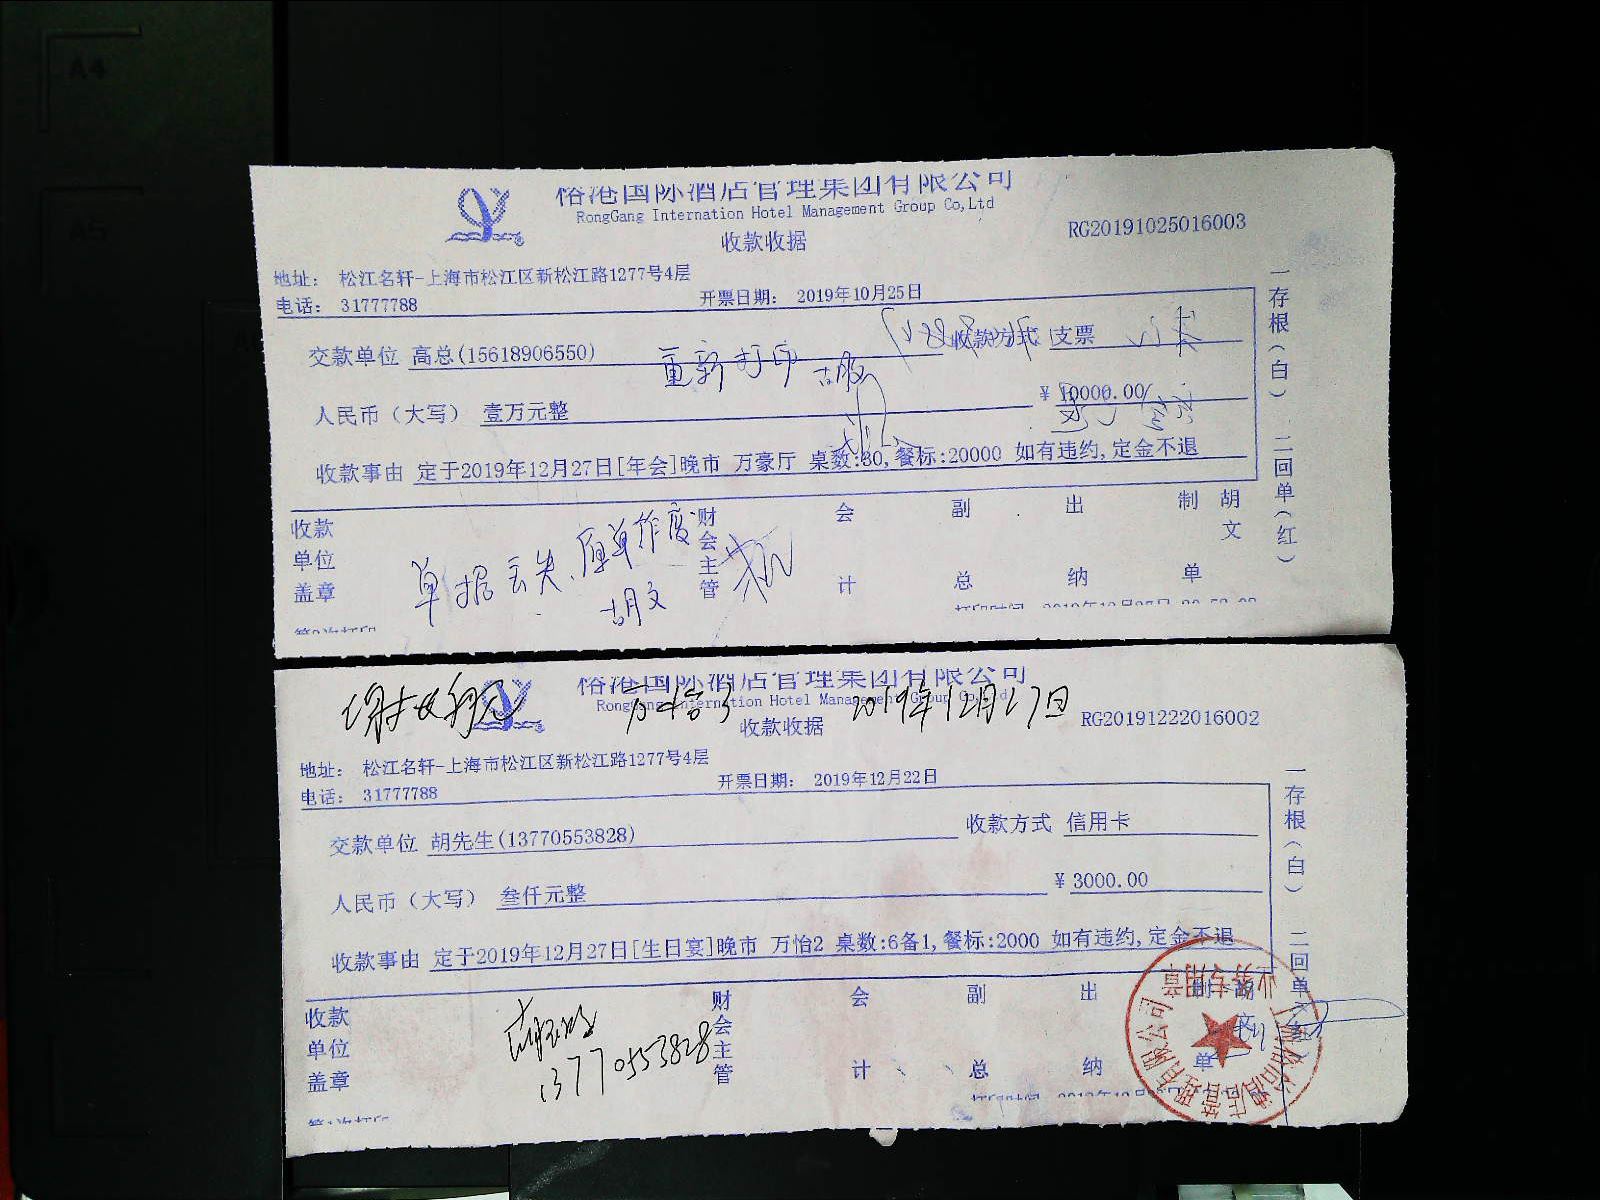 裕港国际酒店管理集团有限公司
RongGang Internation Hotel Management Group Co,Ltd
收款收据
RG20191025016003
地址： 松江名轩-上海市松江区新松江路1277号4层
电话： 31777788
开票日期： 2019年10月25日
交款单位 高总(15618906550)
收款方式 支票
重新打印
人民币（大写） 壹万元整
¥ 10000.00
收款事由 定于2019年12月27日[年会]晚市 万豪厅 桌数:30,餐标:20000 如有违约,定金不退
收款单位盖章
单据丢失、原单作废
胡文
财会主管
会计
副总
出纳
制单
胡文
一存根（白） 二回单（红）
裕港国际酒店管理集团有限公司
RongGang Internation Hotel Management Group Co,Ltd
2019年12月27日
收款收据
RG20191222016002
地址： 松江名轩-上海市松江区新松江路1277号4层
电话： 31777788
开票日期： 2019年12月22日
交款单位 胡先生(13770553828)
收款方式 信用卡
人民币（大写） 叁仟元整
¥ 3000.00
收款事由 定于2019年12月27日[生日宴]晚市 万怡2 桌数:6备1,餐标:2000 如有违约,定金不退
收款单位盖章
13770553828
财会主管
会计
副总
出纳
制单
胡文
一存根（白） 二回单（红）
业务专用章